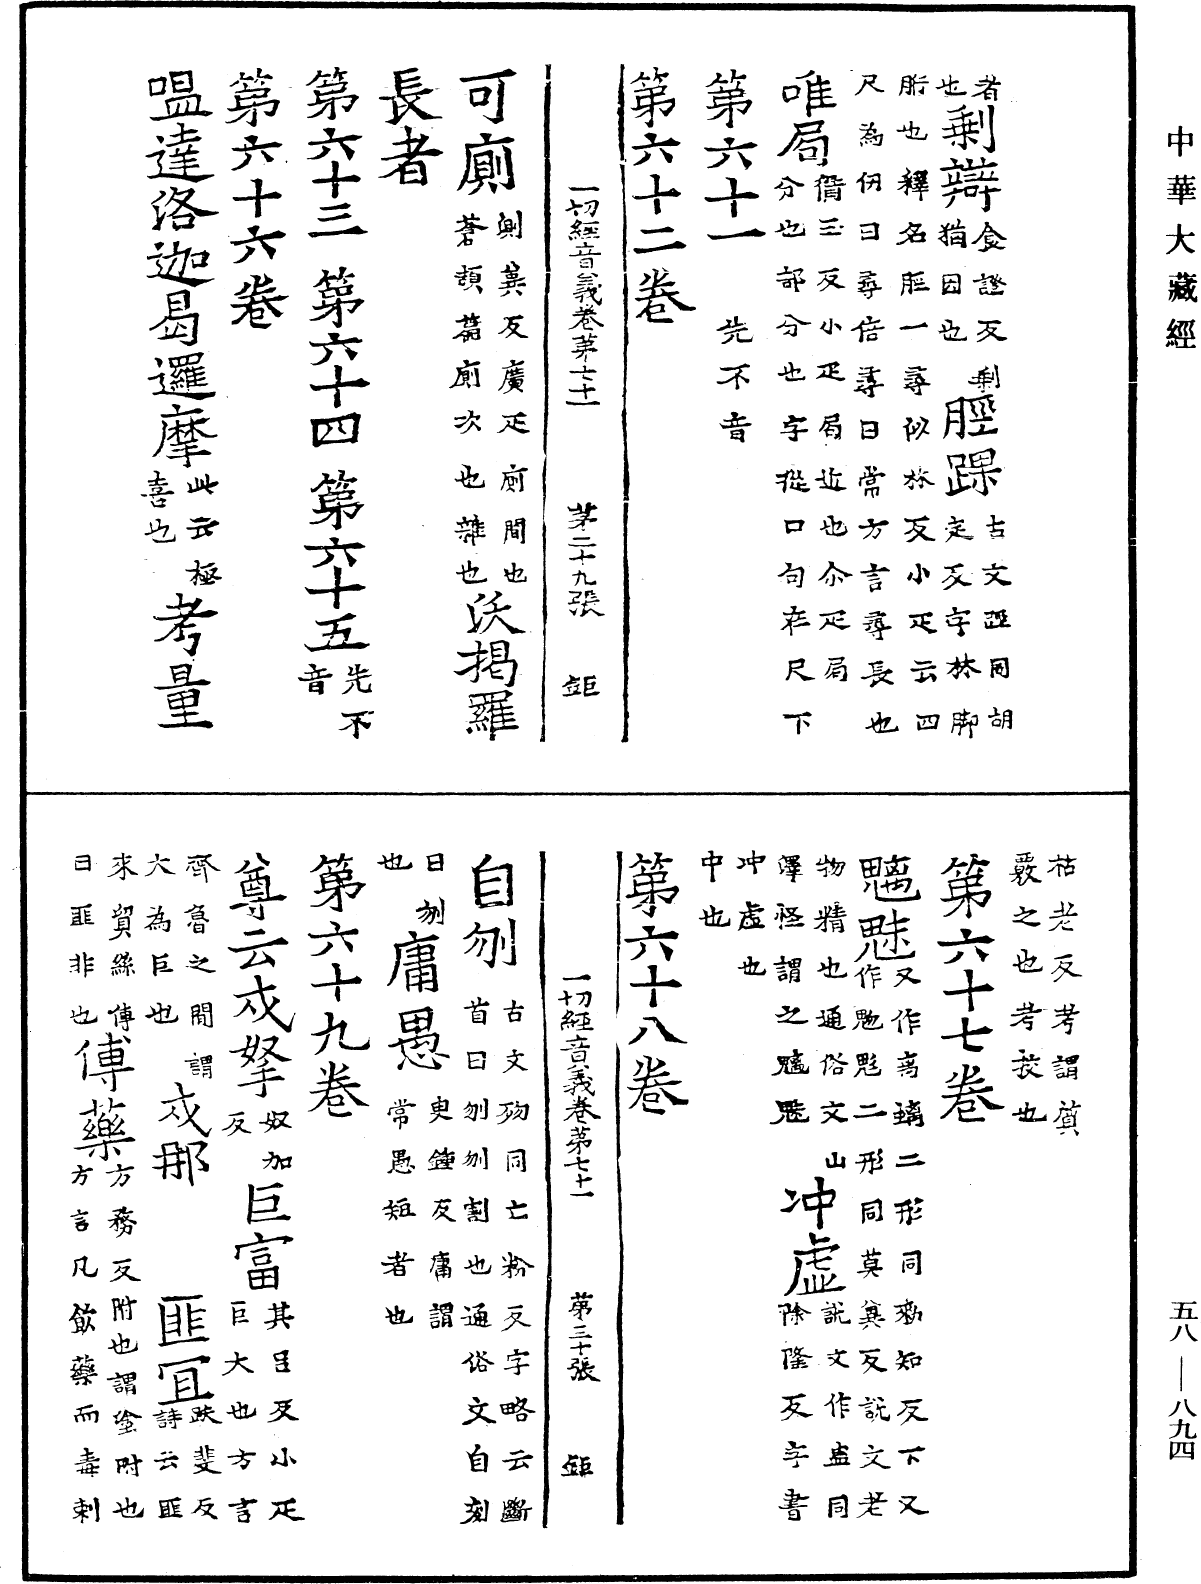 中華大藏經
者
也剩辯食證反剩猶因也脛踝古文踁同胡定反字林腳
胻也釋名脛一尋似林反小疋云四
尺為仞曰尋倍尋曰常方言尋長也
唯局僃玉反小疋局近也亦疋局分也部分也字從口句在尺下
第六十一
第六十二卷 先不音
一切經音義卷苐七十一 苐二十九張 鉅
可廁測冀反廣疋廁間也蒼頡篇廁次也雜也沃揭羅
長者
第六十三 第六十四 第六十五先不音
第六十六卷
嗢達洛迦曷邏摩此云極喜也考量
枯老反考謂質
覈之也考挍也
第六十七卷
魑魅又作离螭二形同勑知反下又作鬽彪二形同莫兾反說文老
物精也通俗文山澤怪謂之魑魅冲虛說文作盅同除隆反字書
冲虛也
中也
第六十八卷
一切經音義卷苐七十一 苐三十張 鉅
自刎古文歾同亡粉反字略云斷首曰刎刎割也通俗文自刻
曰刎
也庸愚臾鍾反庸謂常愚短者也
第六十九卷
尊云戍拏奴加反巨富其呂反小疋巨大也方言
齊魯之間謂
大為巨也戍那匪宜趺斐反詩云匪
來貿絲傳曰匪非也傅藥方務反附也謂塗附也方言凡飲藥而毒刺
五八—八九四